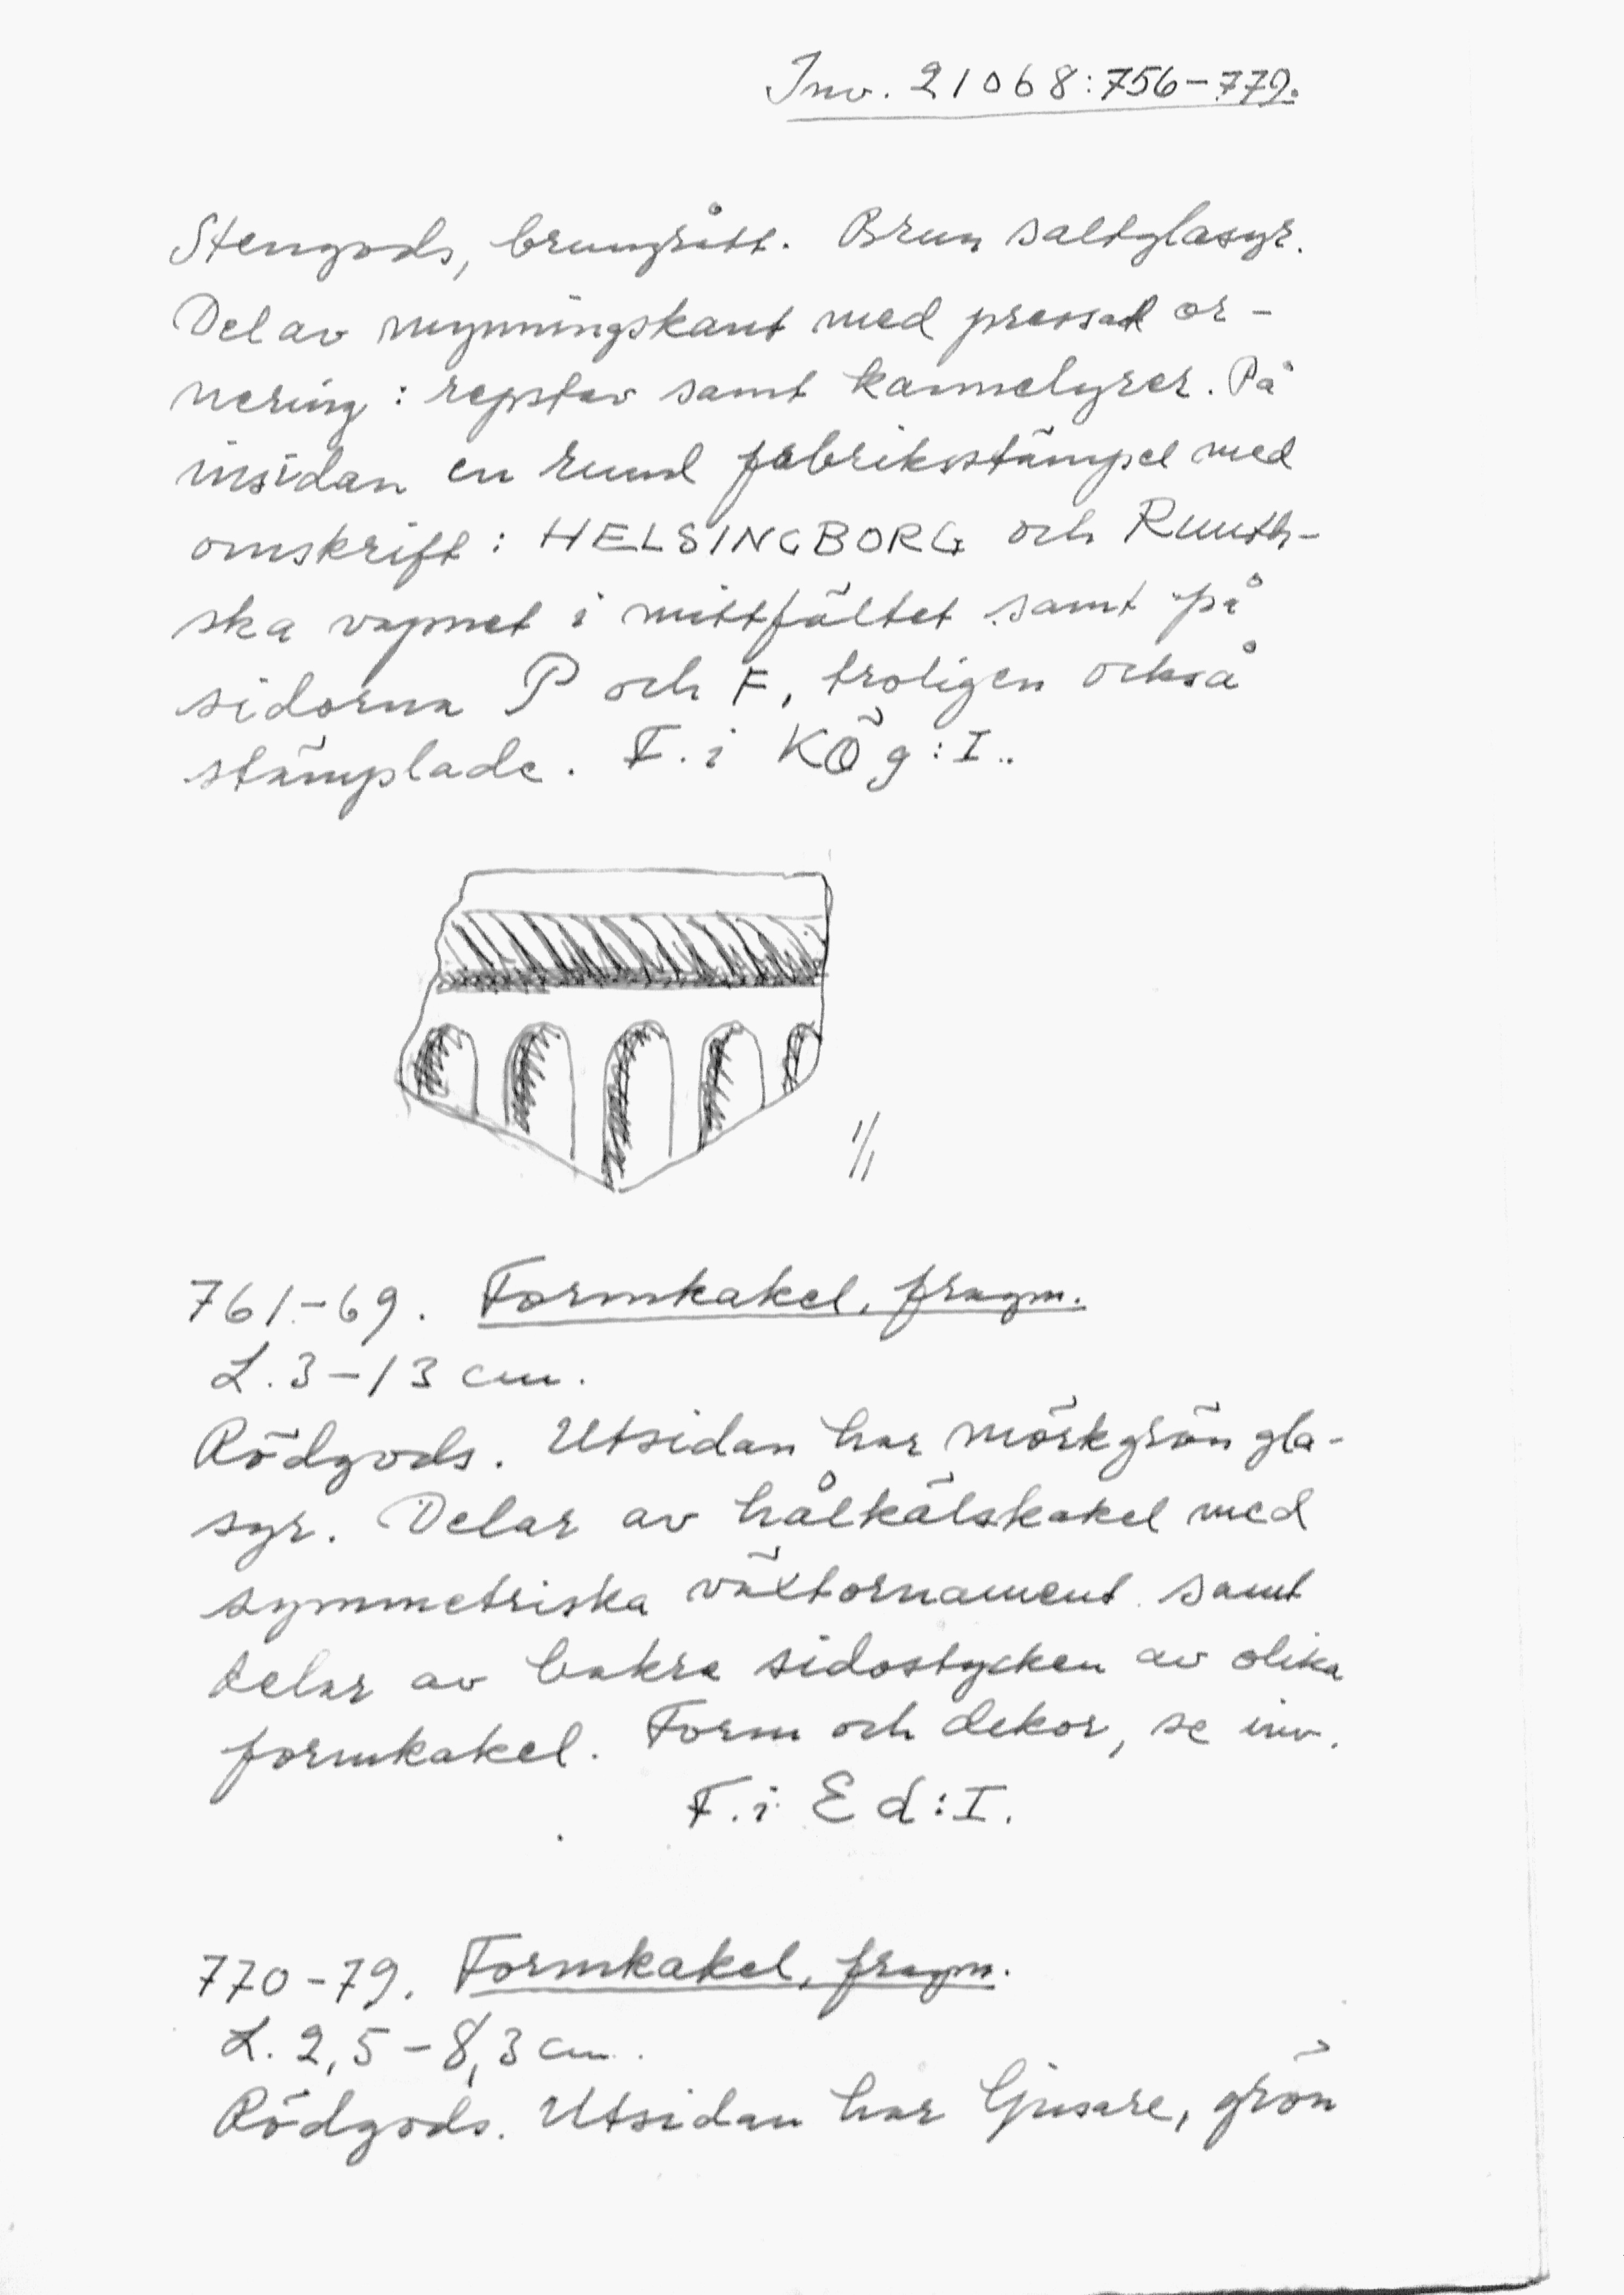 Inv. 21068:756-779.
Stengods, brungrått. Brun saltglasyr.
Del av mynningskant med pressad or-
nering: repstav samt kannelyrer. På
insidan en rund fabriksstämpel med
omskrift: HELSINGBORG och Ruuth-
ska vapnet i mittfältet samt på
sidorna P och F, troligen också
stämplade. F. i KÖg:I.
1/1
761-69. Formkakel, fragm.
L. 3-13 cm.
Rödgods. Utsidan har mörkgrön gla-
syr. Delar av hålkälskakel med
symmetriska växtornament samt
delar av bakre sidostycken av olika
formkakel. Form och dekor, se inv.
F. i Ed:I.
770-79. Formkakel, fragm.
L. 2,5-8,3 cm.
Rödgods. Utsidan har ljusare, grön